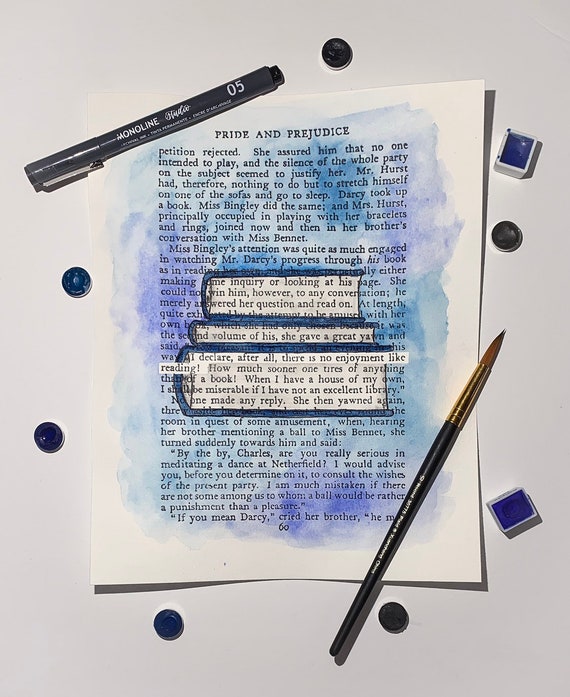 MONOLINE Studio 05
PRIDE AND PREJUDICE
petition rejected. She assured him that no one
intended to play, and the silence of the whole party
on the subject seemed to justify her. Mr. Hurst
had, therefore, nothing to do but to stretch himself
on one of the sofas and go to sleep. Darcy took up
a book. Miss Bingley did the same; and Mrs. Hurst,
principally occupied in playing with her bracelets
and rings, joined now and then in her brother's
conversation with Miss Bennet.
Miss Bingley's attention was quite as much engaged
in watching Mr. Darcy's progress through his book
as in reading her own; and she was perpetually either
making inquiry or looking at his page. She
could not win him, however, to any conversation; he
merely answered her question and read on. At length,
quite by the attempt to be amused with her
own book, which she had only chosen because it was
the second volume of his, she gave a great yawn and
said, his
way! I declare, after all, there is no enjoyment like
reading! How much sooner one tires of anything
than of a book! When I have a house of my own,
I shall be miserable if I have not an excellent library."
one made any reply. She then yawned again,
threw the
room in quest of some amusement, when, hearing
her brother mentioning a ball to Miss Bennet, she
turned suddenly towards him and said:
"By the by, Charles, are you really serious in
meditating a dance at Netherfield? I would advise
you, before you determine on it, to consult the wishes
of the present party. I am much mistaken if there
are not some among us to whom a ball would be rather
a punishment than a pleasure."
"If you mean Darcy," cried her brother, "he m
60